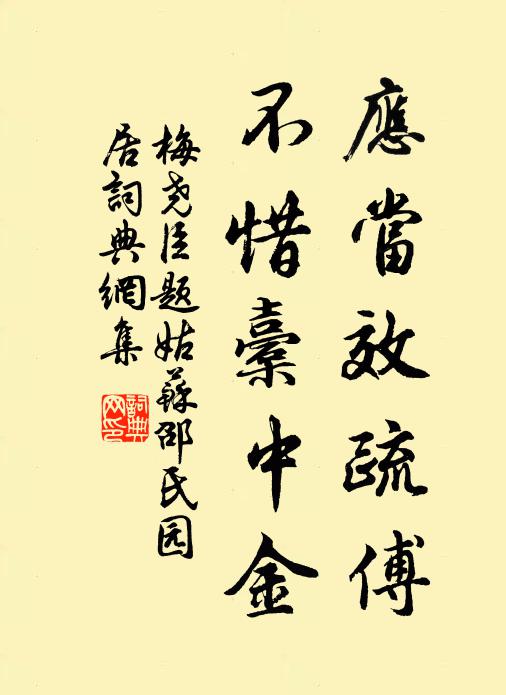 應當效疏傅
不惜橐中金
梅尧臣題姑蘇邵氏园
居詞典網集
詞典
网印